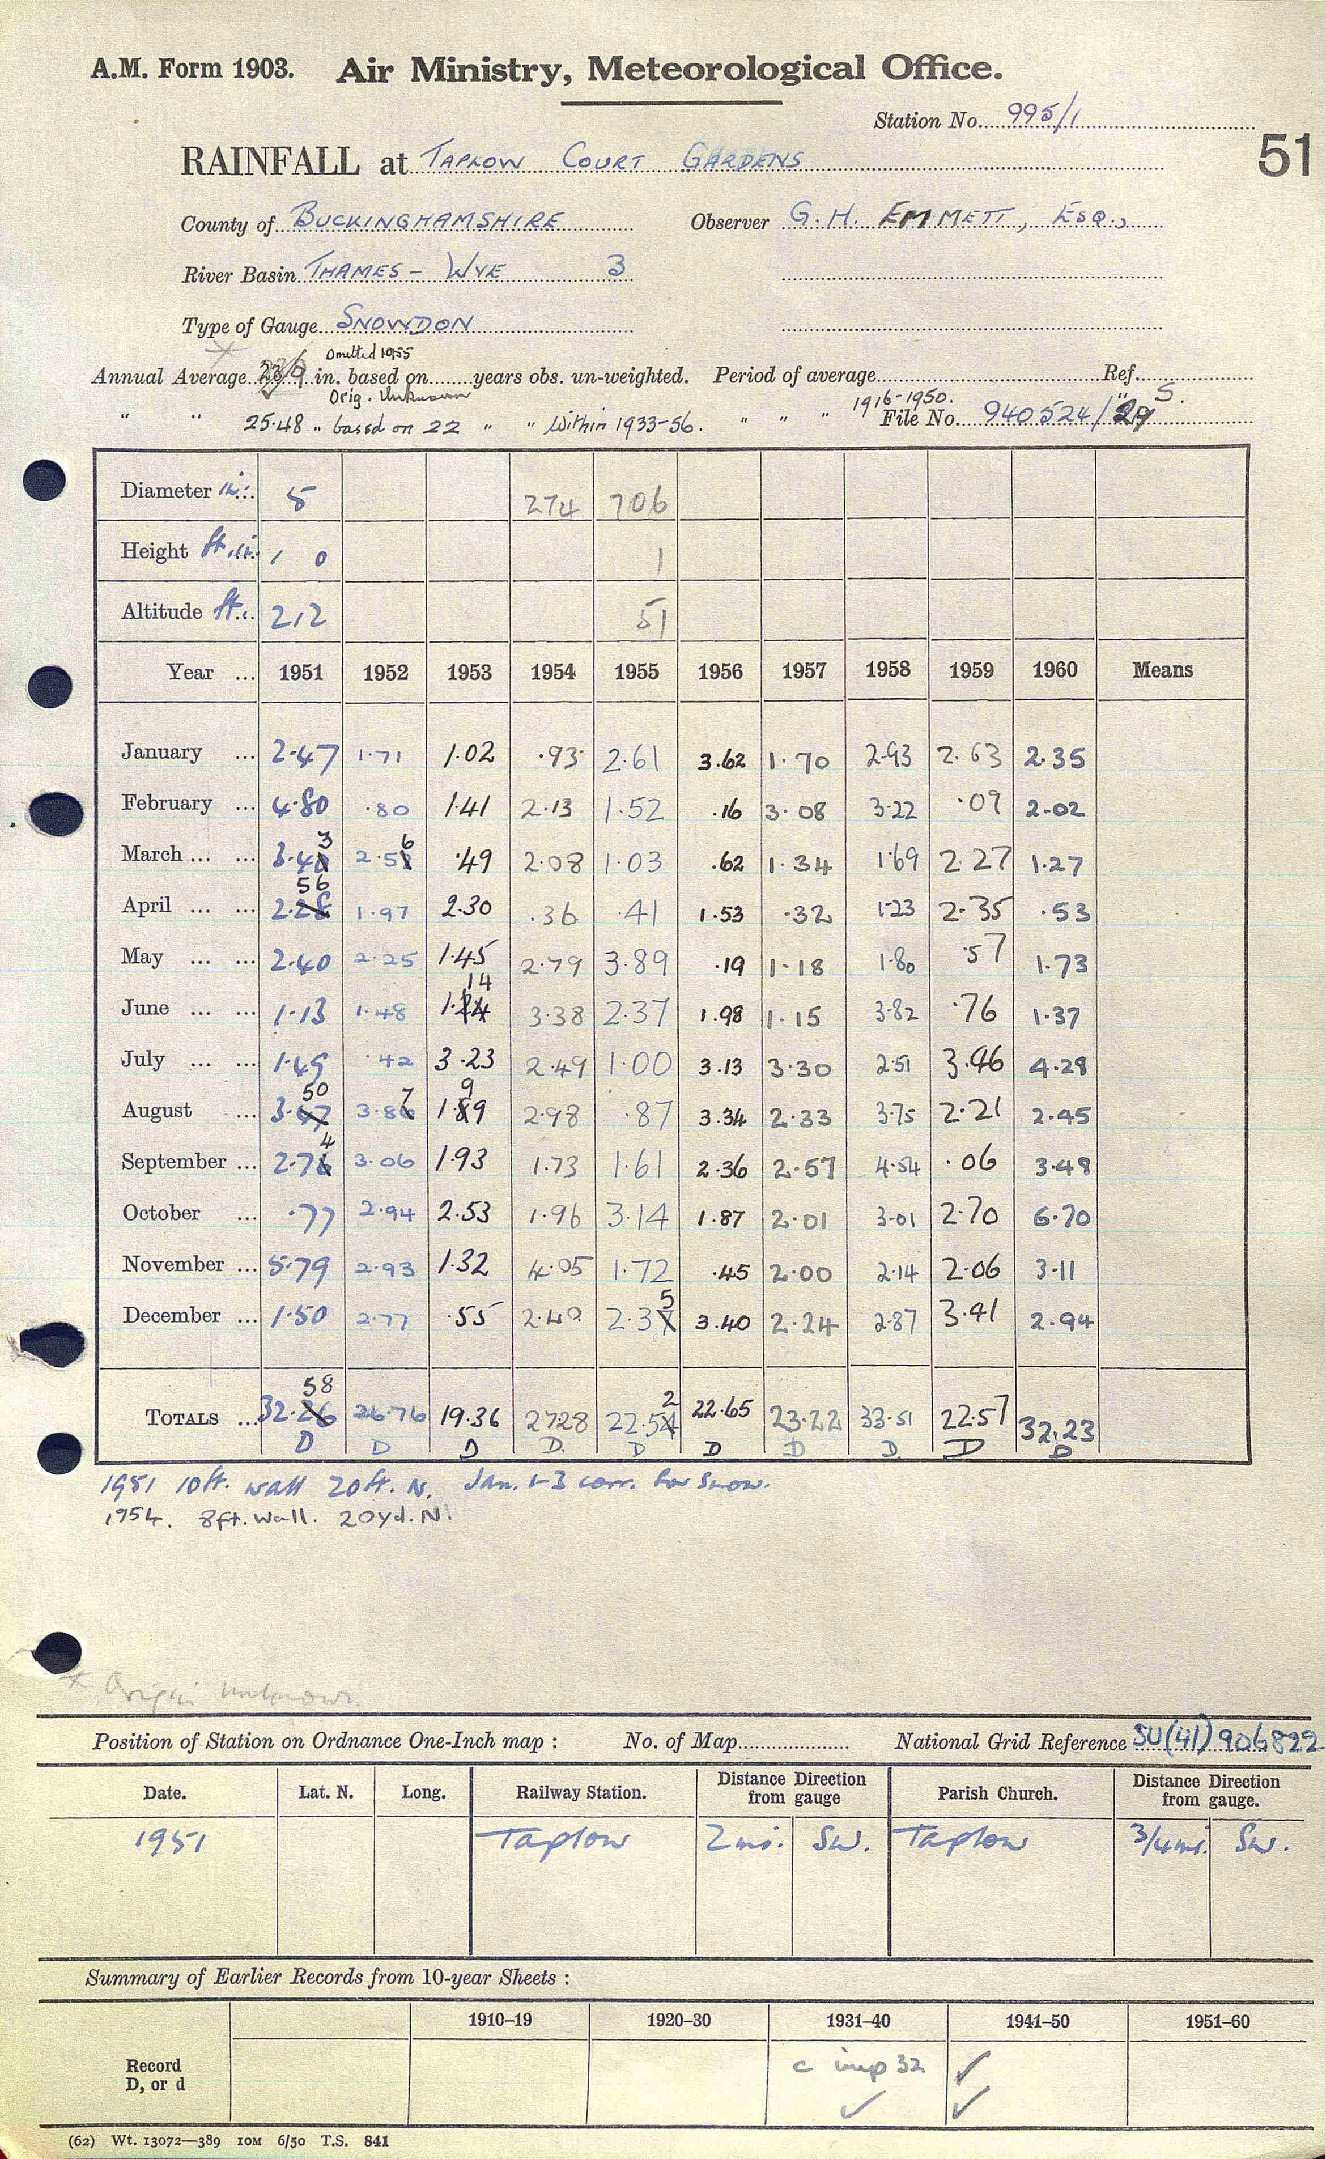 A.M. Form 1903. Air Ministry, Meteorological Office.
Station No. 995/1
51
RAINFALL at TAPLOW COURT GARDENS
County of BUCKINGHAMSHIRE Observer G.H. EMMETT, ESQ.,
River Basin THAMES - WYE 3
Type of Gauge SNOWDON
Omitted 1955
Annual Average in. based on years obs. un-weighted. Period of average Ref.
Orig. Unknown
1916-1950. " S.
" " 25.48 " based on 22 " " Within 1933-56. " " " File No. 940524/
Diameter in. 5 274 706
Height ft. in. 1 0 1
Altitude ft. 212 51
Year ... 1951 1952 1953 1954 1955 1956 1957 1958 1959 1960 Means
January ... 2.47 1.71 1.02 .93 2.61 3.62 1.70 2.93 2.63 2.35
February ... 4.80 .80 1.41 2.13 1.52 .16 3.08 3.22 .09 2.02
March ... ... 3.43 2.56 .49 2.08 1.03 .62 1.34 1.69 2.27 1.27
April ... ... 2.56 1.97 2.30 .36 .41 1.53 .32 1.23 2.35 .53
May ... ... 2.40 2.25 1.45 2.79 3.89 .19 1.18 1.80 .57 1.73
June ... ... 1.13 1.48 1.14 3.38 2.37 1.98 1.15 3.82 .76 1.37
July ... ... 1.49 .42 3.23 2.49 1.00 3.13 3.30 2.51 3.46 4.28
August ... 3.50 3.87 1.99 2.98 .87 3.34 2.33 3.75 2.21 2.45
September ... 2.74 3.06 1.93 1.73 1.61 2.36 2.57 4.54 .06 3.48
October ... .77 2.94 2.53 1.96 3.14 1.87 2.01 3.01 2.70 6.70
November ... 5.79 2.93 1.32 4.05 1.72 .45 2.00 2.14 2.06 3.11
December ... 1.50 2.77 .55 2.40 2.35 3.40 2.24 2.87 3.41 2.94
TOTALS ... 32.58 26.76 19.36 27.28 22.52 22.65 23.22 33.51 22.57 32.23
D D D D D D D D D D
1951 10ft. wall 20ft. N. Jan. 1-3 corr. for Snow.
1954. 8ft. wall. 20yd. N.
* Origin unknown.
Position of Station on Ordnance One-Inch map : No. of Map National Grid Reference SU(41)906822
Date. Lat. N. Long. Railway Station. Distance Direction from gauge Parish Church. Distance Direction from gauge.
1951 Taplow 2mi. SW. Taplow 3/4mi. SW.
Summary of Earlier Records from 10-year Sheets :
1910–19 1920–30 1931–40 1941–50 1951–60
Record
D, or d
c imp 32 ✓
✓ ✓
(62) Wt. 13072—389 IOM 6/50 T.S. 841